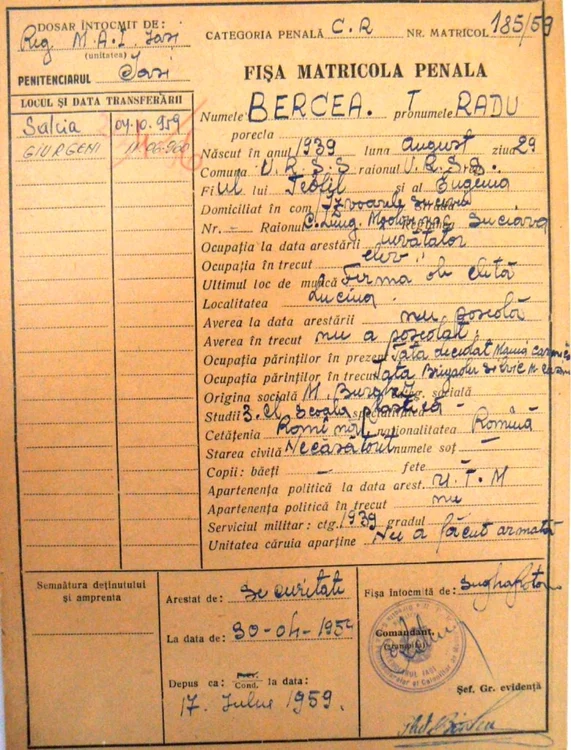 DOSAR ÎNTOCMIT DE:
Reg. M.A.I. Iași
(unitatea)
PENITENCIARUL Iași
CATEGORIA PENALĂ C.R NR. MATRICOL 185/59
FIȘA MATRICOLA PENALA
LOCUL ȘI DATA TRANSFERĂRII
Salcia 04.10.959
GIURGENI 11.06.960
Numele BERCEA. T pronumele RADU
porecla
Născut în anul 1939 luna august ziua 29
Comuna U.R.S.S raionul U.R.S.S.
Fiul lui Teofil și al Eugenia
Domiciliat în com Izvoarele Sucevei
Nr. – Raionul C. Lung. Moldovenesc Regiunea Suciava
Ocupația la data arestării învătător
Ocupația în trecut elev
Ultimul loc de muncă Ferma de elită
Localitatea Lucina
Averea la data arestării nu posedă
Averea în trecut nu a posedat
Ocupația părinților în prezent Tata decedat Mama
Ocupația părinților în trecut Tata Brigadier
Origina socială M. Burghez categ. socială
Studii 3. cl. Școala specialitatea –
Cetățenia Romînă naționalitatea Romînă
Starea civilă Necăsătorit numele soț –
Copii: băeți – fete –
Apartenența politică la data arest. U.T.M
Apartenența politică în trecut nu
Serviciul militar: ctg. 1939 gradul –
Unitatea căruia aparține Nu a făcut armată
Semnătura deținutului
și amprenta
Arestat de: Securitate
La data de: 30-04-195
Depus ca: Prev. Cond. la data:
17. Iulie 1959.
Fișa întocmită de:
Comandant,
Șef. Gr. evidență